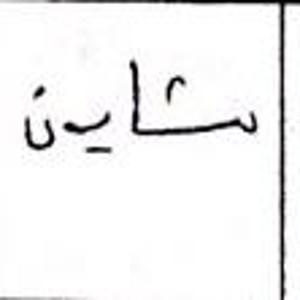 شاين